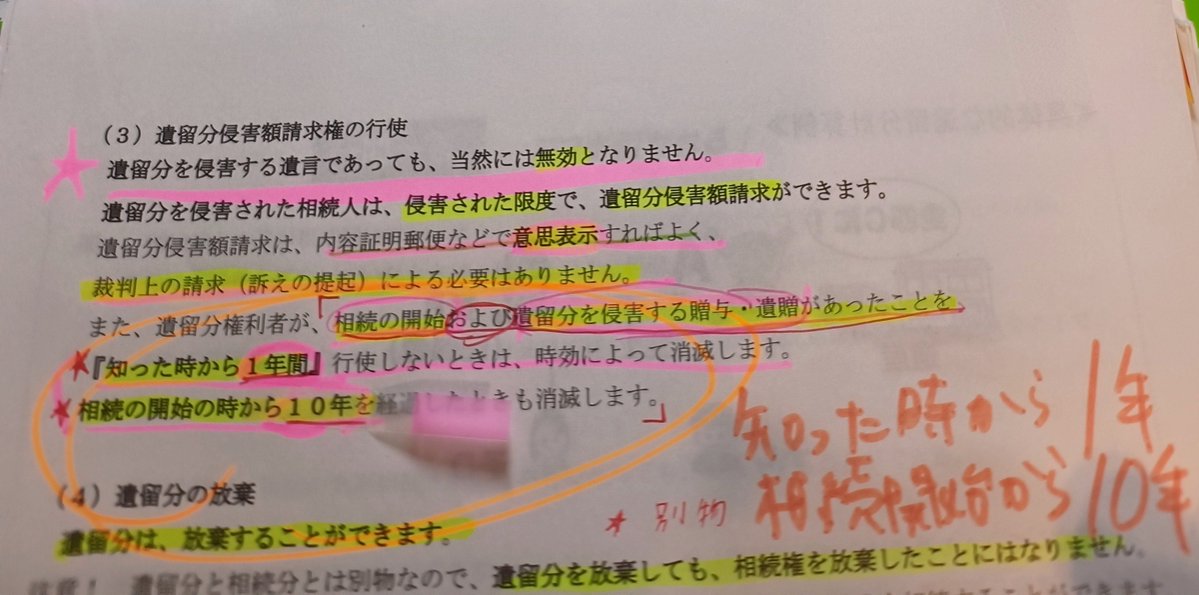 (3)遺留分侵害額請求権の行使
遺留分を侵害する遺言であっても、当然には無効となりません。
遺留分を侵害された相続人は、侵害された限度で、遺留分侵害額請求ができます。
遺留分侵害額請求は、内容証明郵便などで意思表示すればよく、
裁判上の請求(訴えの提起)による必要はありません。
また、遺留分権利者が、「相続の開始および遺留分を侵害する贈与・遺贈があったことを
★『知った時から1年間』行使しないときは、時効によって消滅します。
★相続の開始の時から10年を経過したときも消滅します。」
知った時から1年
相続開始から10年
(4)遺留分の放棄
★別物
遺留分は、放棄することができます。
注意! 遺留分と相続分とは別物なので、遺留分を放棄しても、相続権を放棄したことにはなりません。